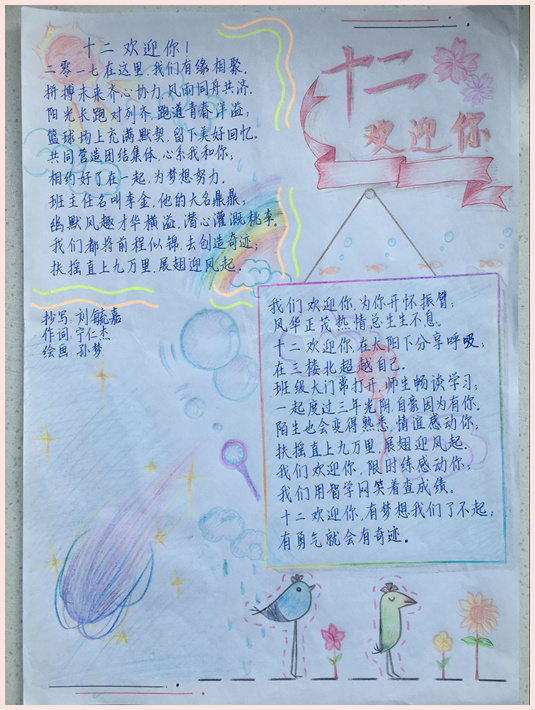 十二欢迎你！
二零一七在这里，我们有缘相聚。
拼搏未来齐心协力，风雨同舟共济。
阳光长跑对列齐，跑道青春洋溢；
篮球场上充满默契，留下美好回忆。
共同营造团结集体，心系我和你；
相约好了在一起，为梦想努力。
班主任名叫李金，他的大名鼎鼎；
幽默风趣才华横溢，潜心灌溉桃李。
我们都将前程似锦，去创造奇迹；
扶摇直上九万里，展翅迎风起。
抄写：刘毓嘉
作词：宁仁杰
绘画：孙梦
十二
欢迎你
我们欢迎你，为你开怀振臂；
风华正茂热情总生生不息。
十二欢迎你，在太阳下分享呼吸；
在三楼北超越自己。
班级大门常打开，师生畅谈学习；
一起度过三年光阴，自豪因为有你。
陌生也会变得熟悉，情谊感动你；
扶摇直上九万里，展翅迎风起。
我们欢迎你，限时练感动你；
我们用智学网笑着查成绩。
十二欢迎你，有梦想我们了不起；
有勇气就会有奇迹。